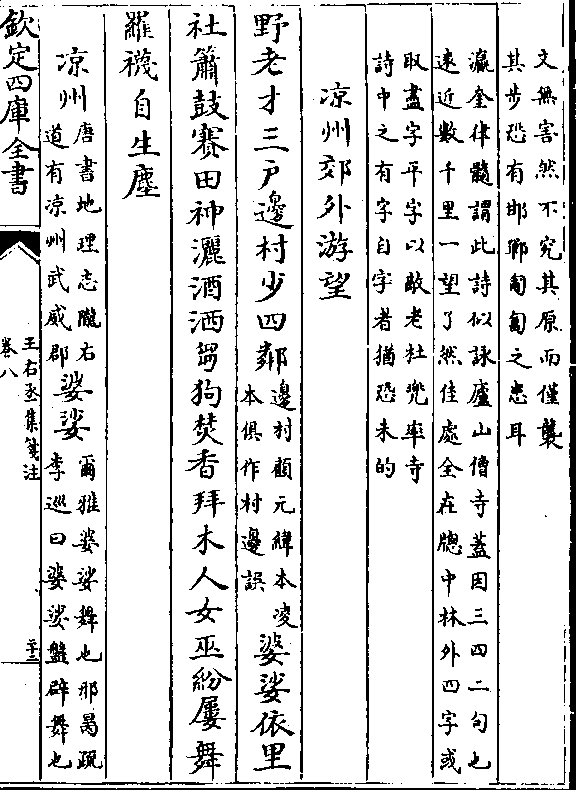 文無害然不究其原而僅襲
其步恐有邯鄲匍匐之患耳
瀛奎律髓謂此詩似詠廬山僧寺蓋因三四二句也
遠近數千里一望了然佳處全在牕中林外四字或
取盡字平字以敵老杜兜率寺
詩中之有字自字者猶恐未的
凉州郊外游望
野老才三戶邊村少四鄰邊村顧元緯本凌本俱作村邊誤婆娑依里
社簫鼓賽田神灑酒洒芻狗焚香拜木人女巫紛屢舞
羅襪自生塵
凉州唐書地理志隴右道有凉州武威郡婆娑爾雅婆娑舞也邢昺疏李巡曰婆娑盤辟舞也
欽定四庫全書
王右丞集箋注
卷八